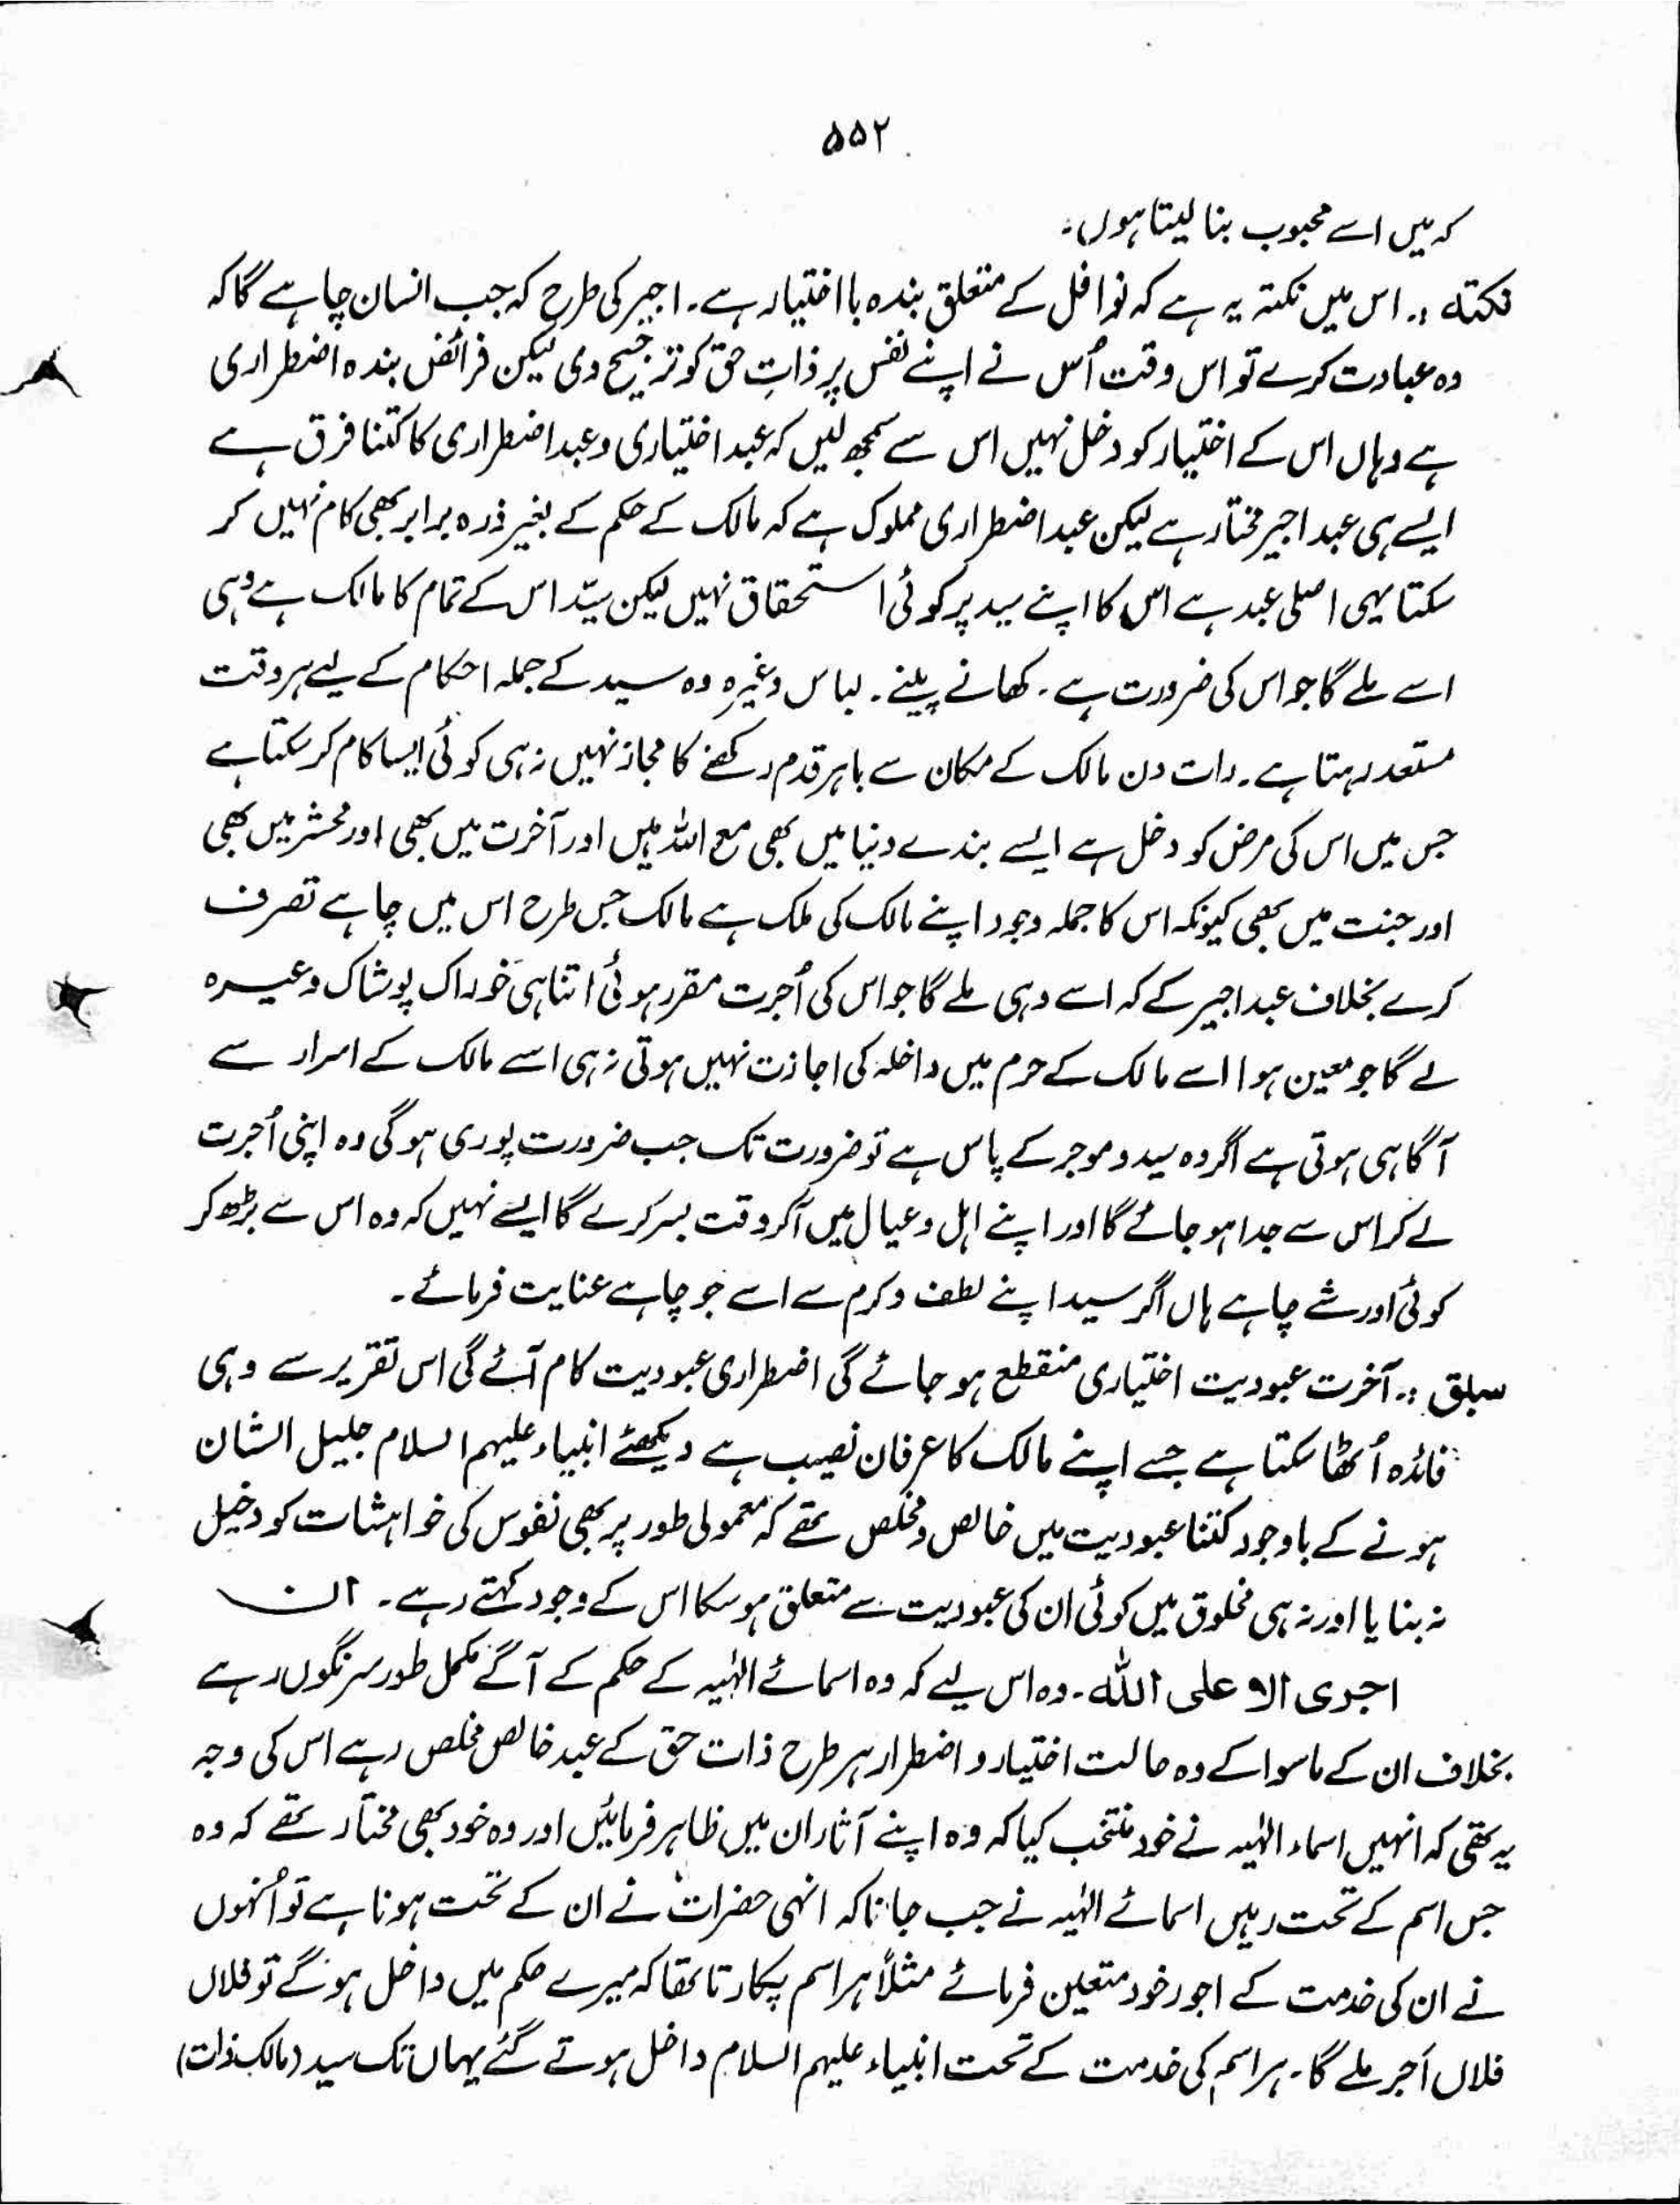 ۵۵۲
کہ میں اسے محبوب بنا لیتا ہوں۔
نکتہ :۔ اس میں نکتہ یہ ہے کہ نوافل کے متعلق بندہ با اختیار ہے۔ اجیر کی طرح کہ جب انسان چاہے گا کہ
وہ عبادت کرے تو اس وقت اُس نے اپنے نفس پر ذاتِ حق کو ترجیح دی لیکن فرائض بندہ اضطراری
ہے وہاں اس کے اختیار کو دخل نہیں اس سے سمجھ لیں کہ عبد اختیاری و عبد اضطراری کا کتنا فرق ہے
ایسے ہی عبد اجیر مختار ہے لیکن عبد اضطراری مملوک ہے کہ مالک کے حکم کے بغیر ذرہ برابر بھی کام نہیں کر
سکتا یہی اصلی عبد ہے اس کا اپنے سید پر کوئی استحقاق نہیں لیکن سیّد اس کے تمام کا مالک ہے وہی
اسے ملے گا جو اس کی ضرورت ہے۔ کھانے پینے۔ لباس وغیرہ وہ سید کے جملہ احکام کے لیے ہر وقت
مستعد رہتا ہے۔ رات دن مالک کے مکان سے باہر قدم رکھنے کا مجاز نہیں نہ ہی کوئی ایسا کام کر سکتا ہے
جس میں اس کی مرض کو دخل ہے ایسے بندے دنیا میں بھی مع اللہ ہیں اور آخرت میں بھی اور محشر میں بھی
اور جنت میں بھی کیونکہ اس کا جملہ وجود اپنے مالک کی ملک ہے مالک جس طرح اس میں چاہے تصرف
کرے بخلاف عبد اجیر کے کہ اسے وہی ملے گا جو اس کی اُجرت مقرر ہوئی اتنا ہی خوراک پوشاک وغیرہ
لے گا جو معین ہوا اسے مالک کے حرم میں داخلہ کی اجازت نہیں ہوتی نہ ہی اسے مالک کے اسرار سے
آگاہی ہوتی ہے اگر وہ سید و موجر کے پاس ہے تو ضرورت تک جب ضرورت پوری ہوگی وہ اپنی اُجرت
لے کر اس سے جدا ہو جائے گا اور اپنے اہل و عیال میں آکر وقت بسر کرے گا ایسے نہیں کہ وہ اس سے بڑھ کر
کوئی اور شے چاہے ہاں اگر سید اپنے لطف و کرم سے اسے جو چاہے عنایت فرمائے۔
سبق :۔ آخرت عبودیت اختیاری منقطع ہو جائے گی اضطراری عبودیت کام آئے گی اس تقریر سے وہی
فائدہ اُٹھا سکتا ہے جسے اپنے مالک کا عرفان نصیب ہے دیکھئے انبیاء علیہم السلام جلیل الشان
ہونے کے باوجود کتنا عبودیت میں خالص و مخلص تھے کہ معمولی طور پر بھی نفوس کی خواہشات کو دخیل
نہ بنایا اور نہ ہی مخلوق میں کوئی ان کی عبودیت سے متعلق ہو سکا اس کے وجود کہتے رہے۔ ان
اجری الا علی اللہ۔ وہ اس لیے کہ وہ اسمائے الہٰیہ کے حکم کے آگے مکمل طور سرنگوں رہے
بخلاف ان کے ماسوا کے وہ حالت اختیار و اضطرار ہر طرح ذات حق کے عبد خالص مخلص رہے اس کی وجہ
یہ تھی کہ انہیں اسماء الہٰیہ نے خود منتخب کیا کہ وہ اپنے آثار ان میں ظاہر فرمائیں اور وہ خود بھی مختار تھے کہ وہ
جس اسم کے تحت رہیں اسمائے الہٰیہ نے جب جانا کہ انہی حضرات نے ان کے تحت ہونا ہے تو اُنہوں
نے ان کی خدمت کے اجور خود متعین فرمائے مثلاً ہر اسم پکارتا تھا کہ میرے حکم میں داخل ہو گے تو فلاں
فلاں اَجر ملے گا۔ ہر اسم کی خدمت کے تحت انبیاء علیہم السلام داخل ہوتے گئے یہاں تک سید (مالک ذات)